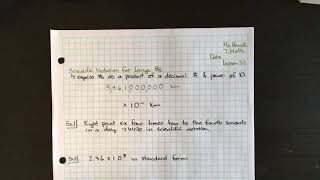 7 Math
Date
Lesson 5.1
Scientific Notation for Large #s
↳ express #s as a product of a decimal # & power of 10
9,461,000,000 km
km
Ex.1) Eight point six four times ten to the fourth seconds
in a day. Write in scientific notation.
Ex.2) in standard form